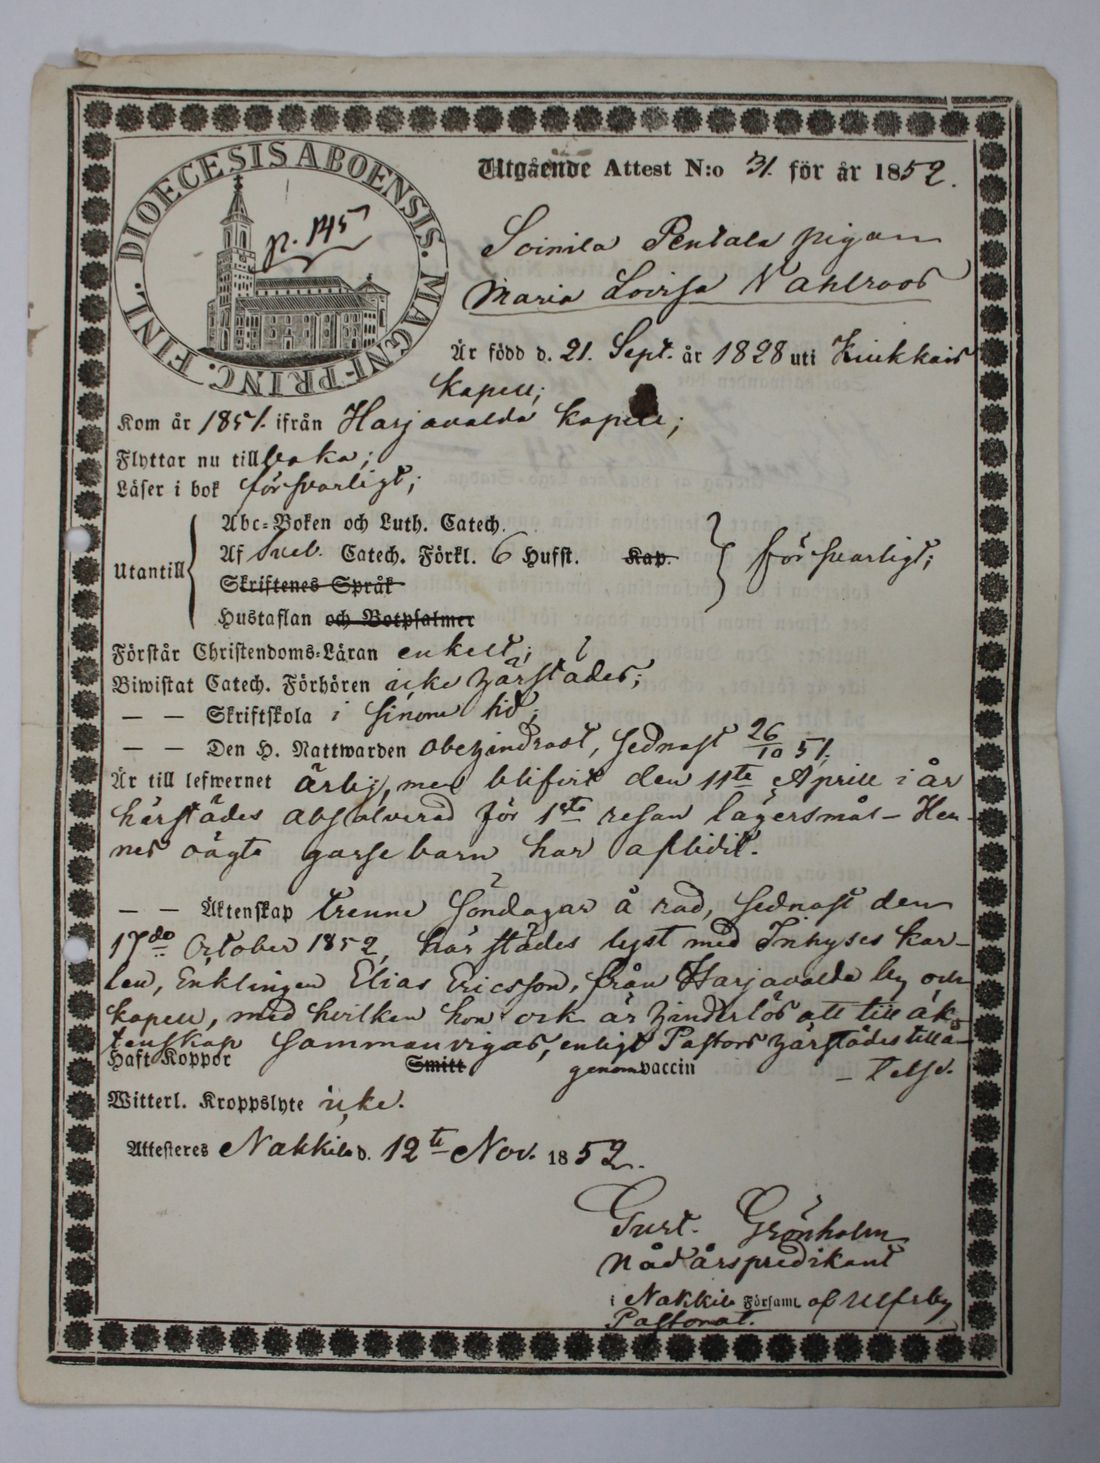 DIOECESIS ABOENSIS. MAGNI PRINC. FINL.
p. 145
Utgående Attest N:o 31. för år 1852.
Soinila Pentala pigan
Maria Lovisa Wahlroos
Är född d. 21. Sept. år 1828 uti Kiukkais
kapell;
Kom år 1851. ifrån Harjavalda kapell;
Flyttar nu tillbaka;
Läser i bok försvarligt;
Utantill
Abc-Boken och Luth. Catech.
Af Sveb. Catech. Förkl. 6 Hufst. Kap.
försvarligt;
Skriftenes Språk
Hustaflan och Botpsalmer
Förstår Christendoms-Läran enkelt;
Biwistat Catech. Förhören icke härstädes;
— — Skriftskola i sinom tid;
— — Den H. Nattwarden obehindrat, sednast 26/10 51;
Är till lefwernet ärlig, men blifvit den 11te Aprill i år
härstädes absolverad för 1sta resan lägersmål – Hen-
nes oägta gossebarn har aflidit.
— — Äktenskap trenne Söndagar å rad, sednast den
17de October 1852, härstädes lyst med Inhyses kar-
len, Enklingen Elias Ericsson, från Harjavalda by och
kapell, med hvilken hon ock är hinderlös att till äk-
tenskap sammanvigas, enligt Pastors härstädes tillå-
Haft Koppor Smitt genom vaccin
– telse.
Witterl. Kroppslyte icke.
Attesteres Nakkila d. 12te Nov. 1852.
Gust. Grönholm
Nådårspredikant
i Nakkila Församl. af Ulfsby
Pastorat.